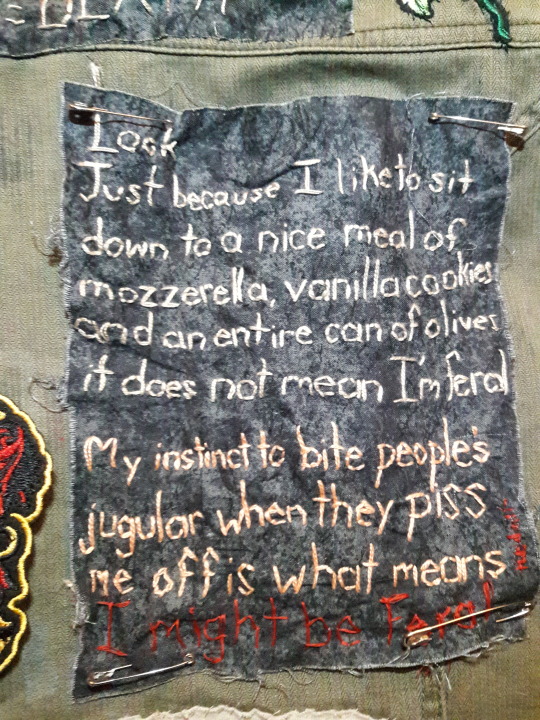 Look
Just because I like to sit
down to a nice meal of
mozzerella, vanilla cookies
and an entire can of olives
it does not mean I'm feral
My instinct to bite people's
jugular when they piss
me off is what means
I might be Feral